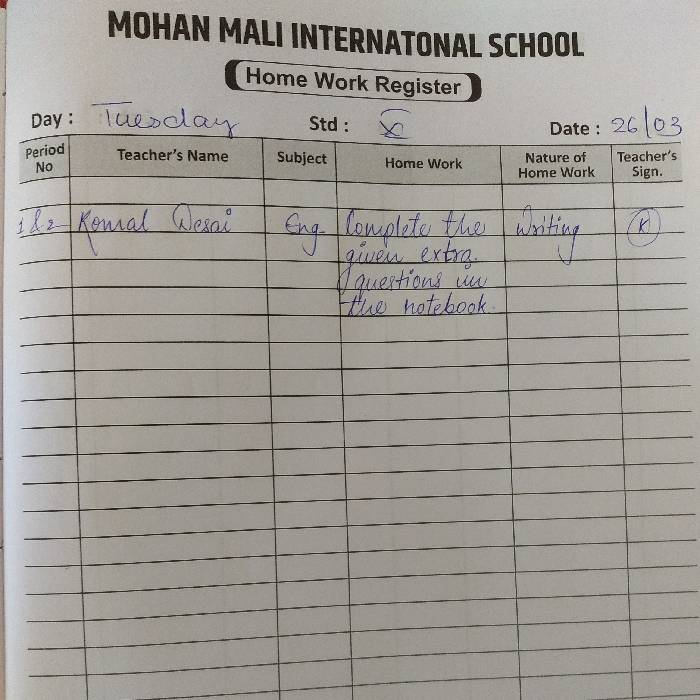 MOHAN MALI INTERNATONAL SCHOOL
Home Work Register
Day : Tuesday Std : X Date : 26/03
Period No Teacher's Name Subject Home Work Nature of Home Work Teacher's Sign.
1 & 2 Komal Desai Eng Complete the Writing K
given extra
questions in
the notebook.